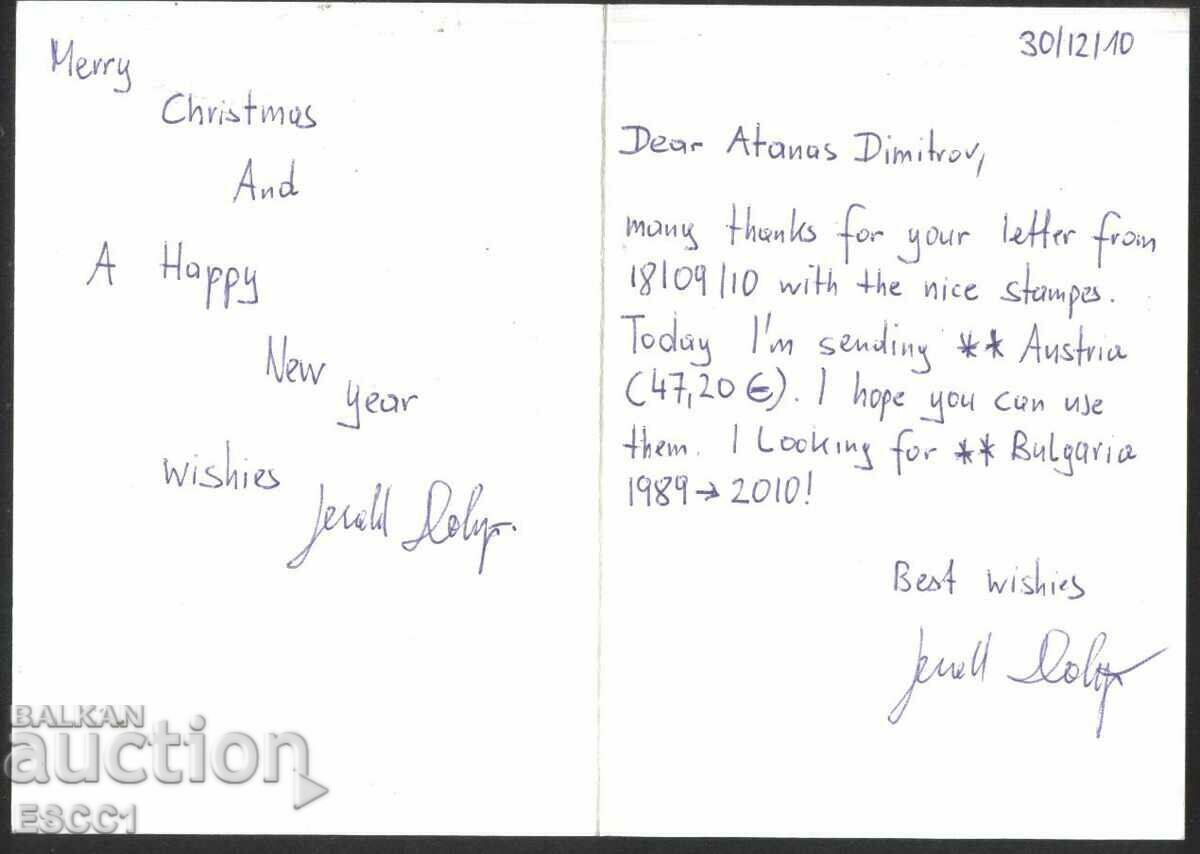 Merry
Christmas
And
A Happy
New
year
wishies
30/12/10
Dear Atanas Dimitrov,
many thanks for your letter from
18/09/10 with the nice stampes.
Today I'm sending ** Austria
(47,20 €). I hope you can use
them. I Looking for ** Bulgaria
1989 → 2010!
Best wishies
BALKAN
auction
ESCC1